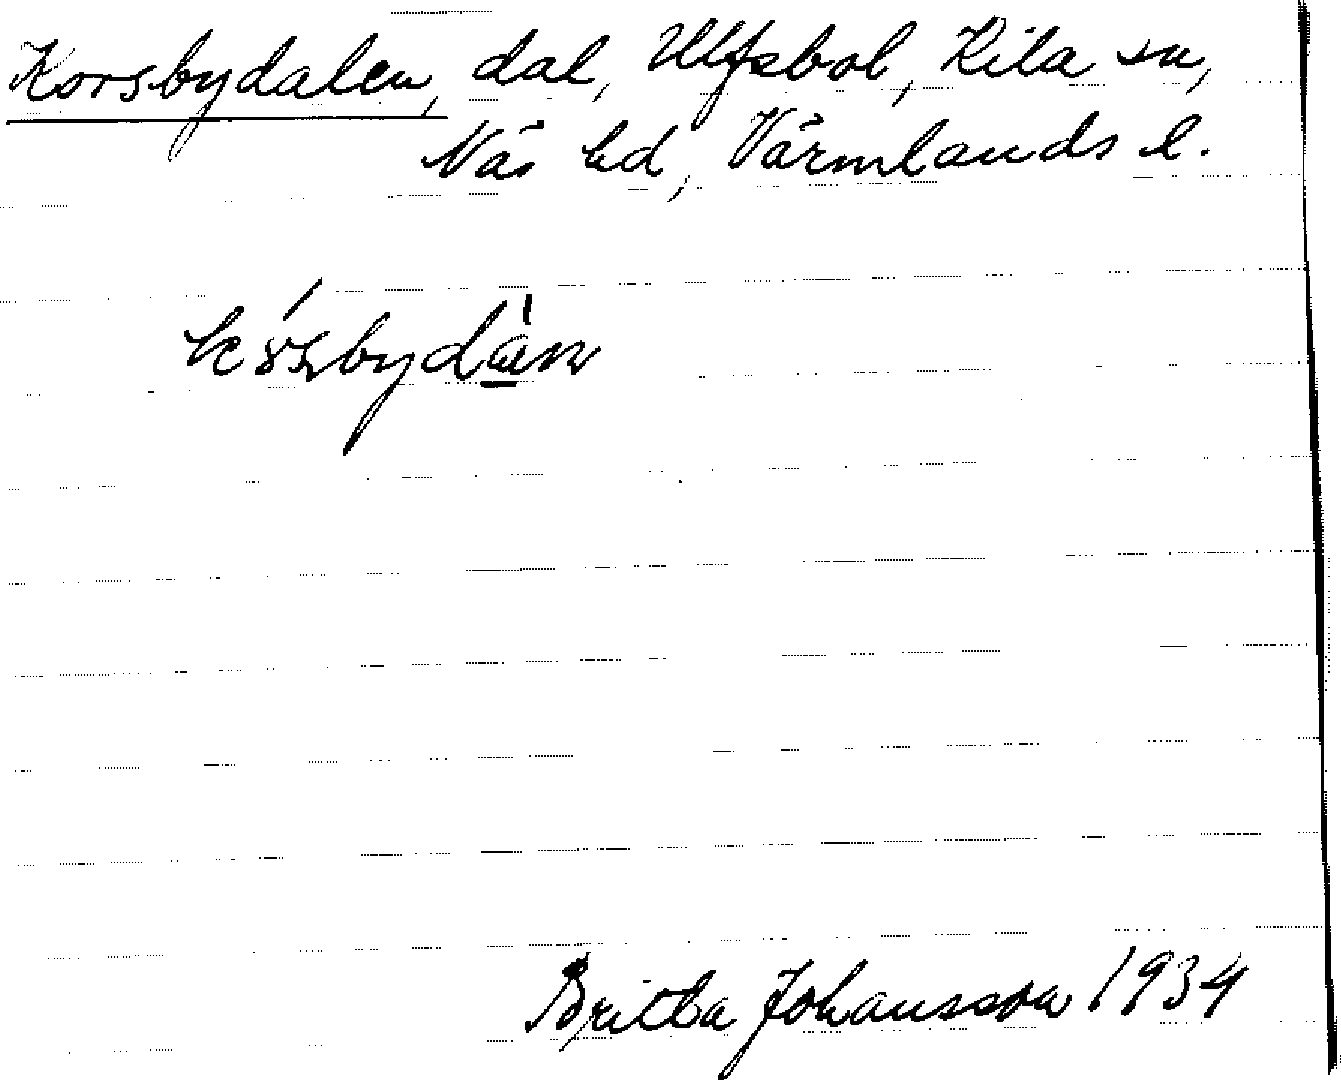 Korsbydalen, dal, Ulfsbol, Kila sn,
Näs hd, Värmlands l.
Britta Johansson 1934